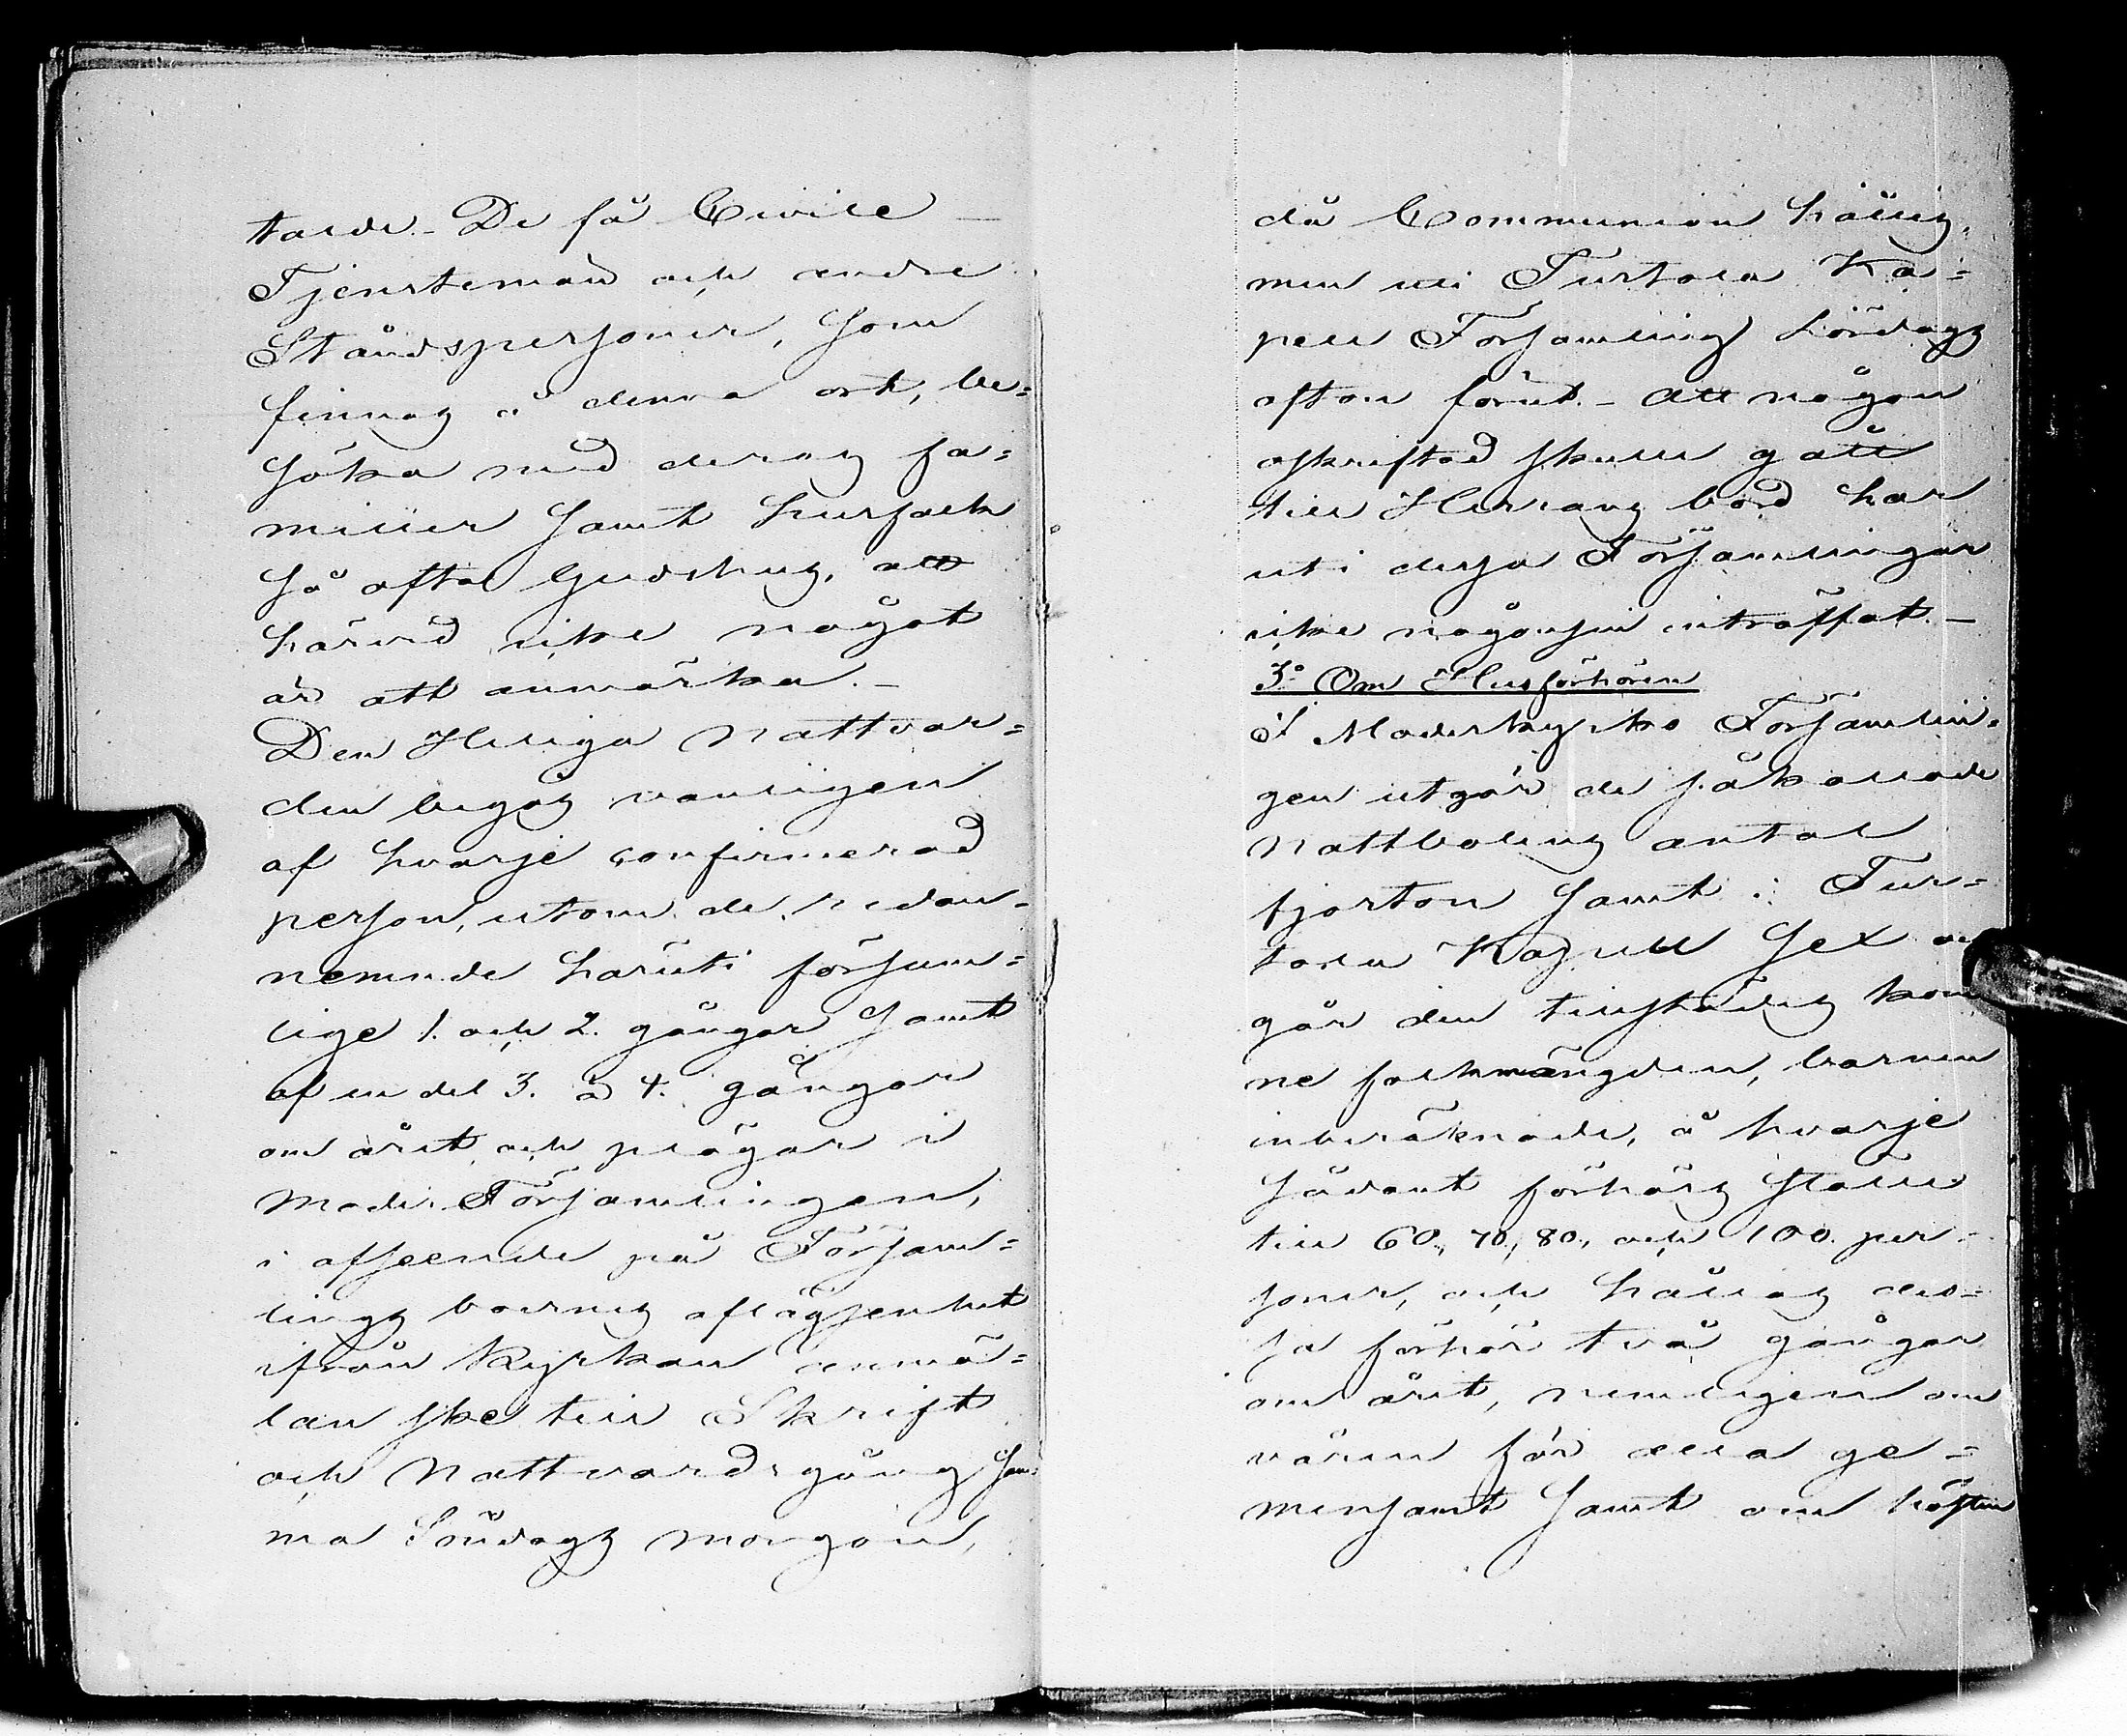 talde. De få Civile
Tjensteman och andre
Ståndspersoner, som
finnas å denna ort, be=
söka med deras fa=
miller samt husfolk
så ofta Gudshus, att
härvid icke något
är att anmärka.
Den Heliga Nattvar=
den begås vanligen
af hvarje confirmerad
person, utom de nedan=
nemnde häruti försum=
lige 1. och 2. gångar samt
af en del 3. à 4. gångor
om året och plägar i
Moder Församlingen,
i afseende på Försam=
lings boernes aflägsenhet
ifrån Kyrkan anmä=
lan ske till Skrift
och Nattvards gång sam=
ma Söndags morgon,
då Communion hålles,
men uti Turtola Ka=
pell Församling Lördags
afton förut. Att någon
oskriftad skull gått
till Herrans bord har
uti dessa Församlingar
icke någonsin inträffat.
3:o Om Husförhören
I Moderkyrko Församlin=
gen utgör de så kallade
Nattbolens antal
fjorton samt i Tur=
tola Kapell Sex
går den tillstädes kom
ne folkmängden, barnen
inberäknade, å hvarje
sådant förhörs ställe
till 60, 70, 80, och 100 per=
soner, och hållas des=
sa förhör två gångor
om året, nemligen om
våren för alla ge=
mensamt samt om hösten